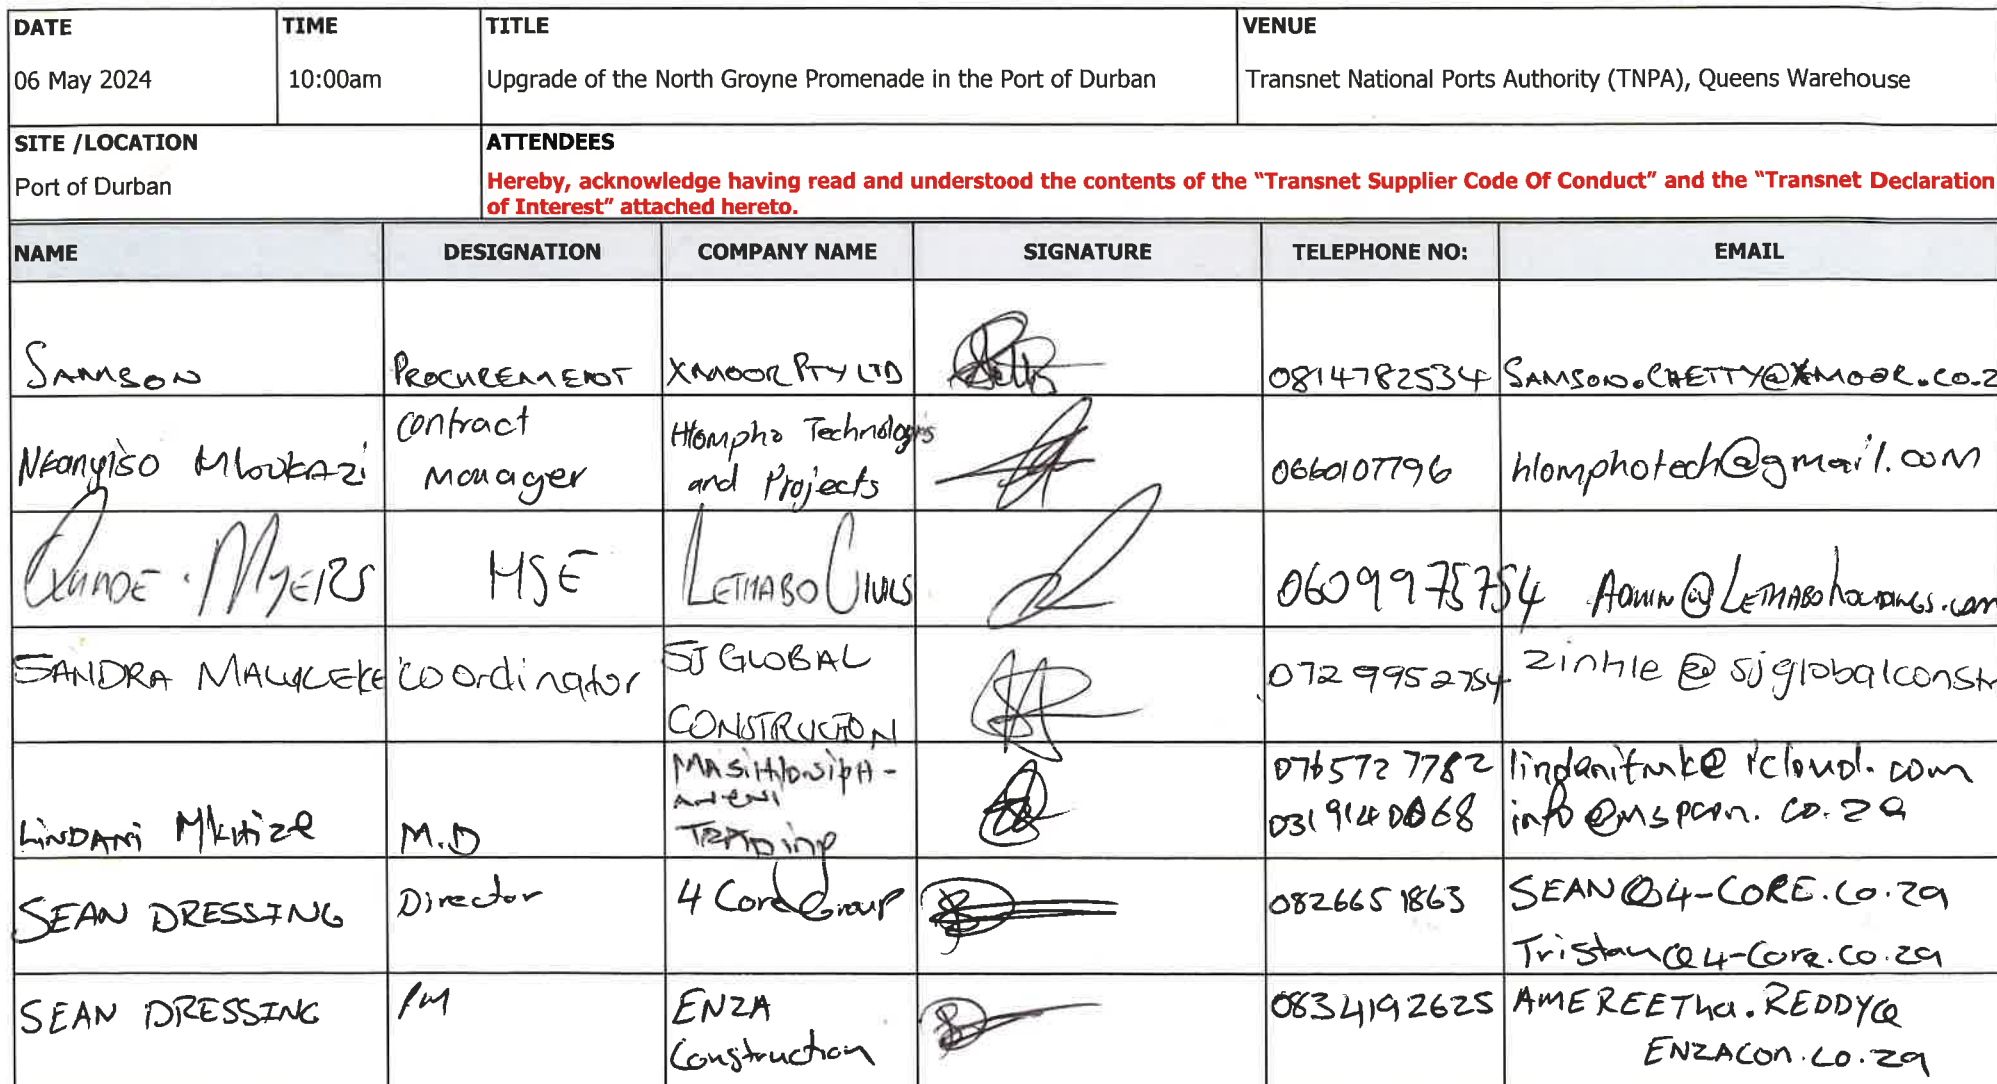 DATE TIME TITLE VENUE
06 May 2024 10:00am Upgrade of the North Groyne Promenade in the Port of Durban Transnet National Ports Authority (TNPA), Queens Warehouse
SITE /LOCATION ATTENDEES
Port of Durban Hereby, acknowledge having read and understood the contents of the “Transnet Supplier Code Of Conduct” and the “Transnet Declaration
of Interest” attached hereto.
NAME DESIGNATION COMPANY NAME SIGNATURE TELEPHONE NO: EMAIL
SAMSON PROCUREMENT XMOOR PTY LTD 0814782534 SAMSON.CHETTY@XMOOR.CO.Z
contract Hlompho Technologies
Nkanyiso manager and Projects 0660107796 hlomphotech@gmail.com
MYERS HSE LETHABO CIVILS 0609975754 ADMIN@LETHABOHOLDINGS.com
SANDRA MALULEKE coordinator SJ GLOBAL 0729952754 zinhle@sjglobalconstr
CONSTRUCTION
0765727782 @icloud.com
LINDANI Mkhize M.D TRADING 0319140068 .co.za
SEAN DRESSING Director 4 Core Group 0826651863 SEAN@4-CORE.co.za
Tristan@4-Core.co.za
SEAN DRESSING PM ENZA 0834192625 AMEREETHa.REDDY@
Construction ENZACON.co.za